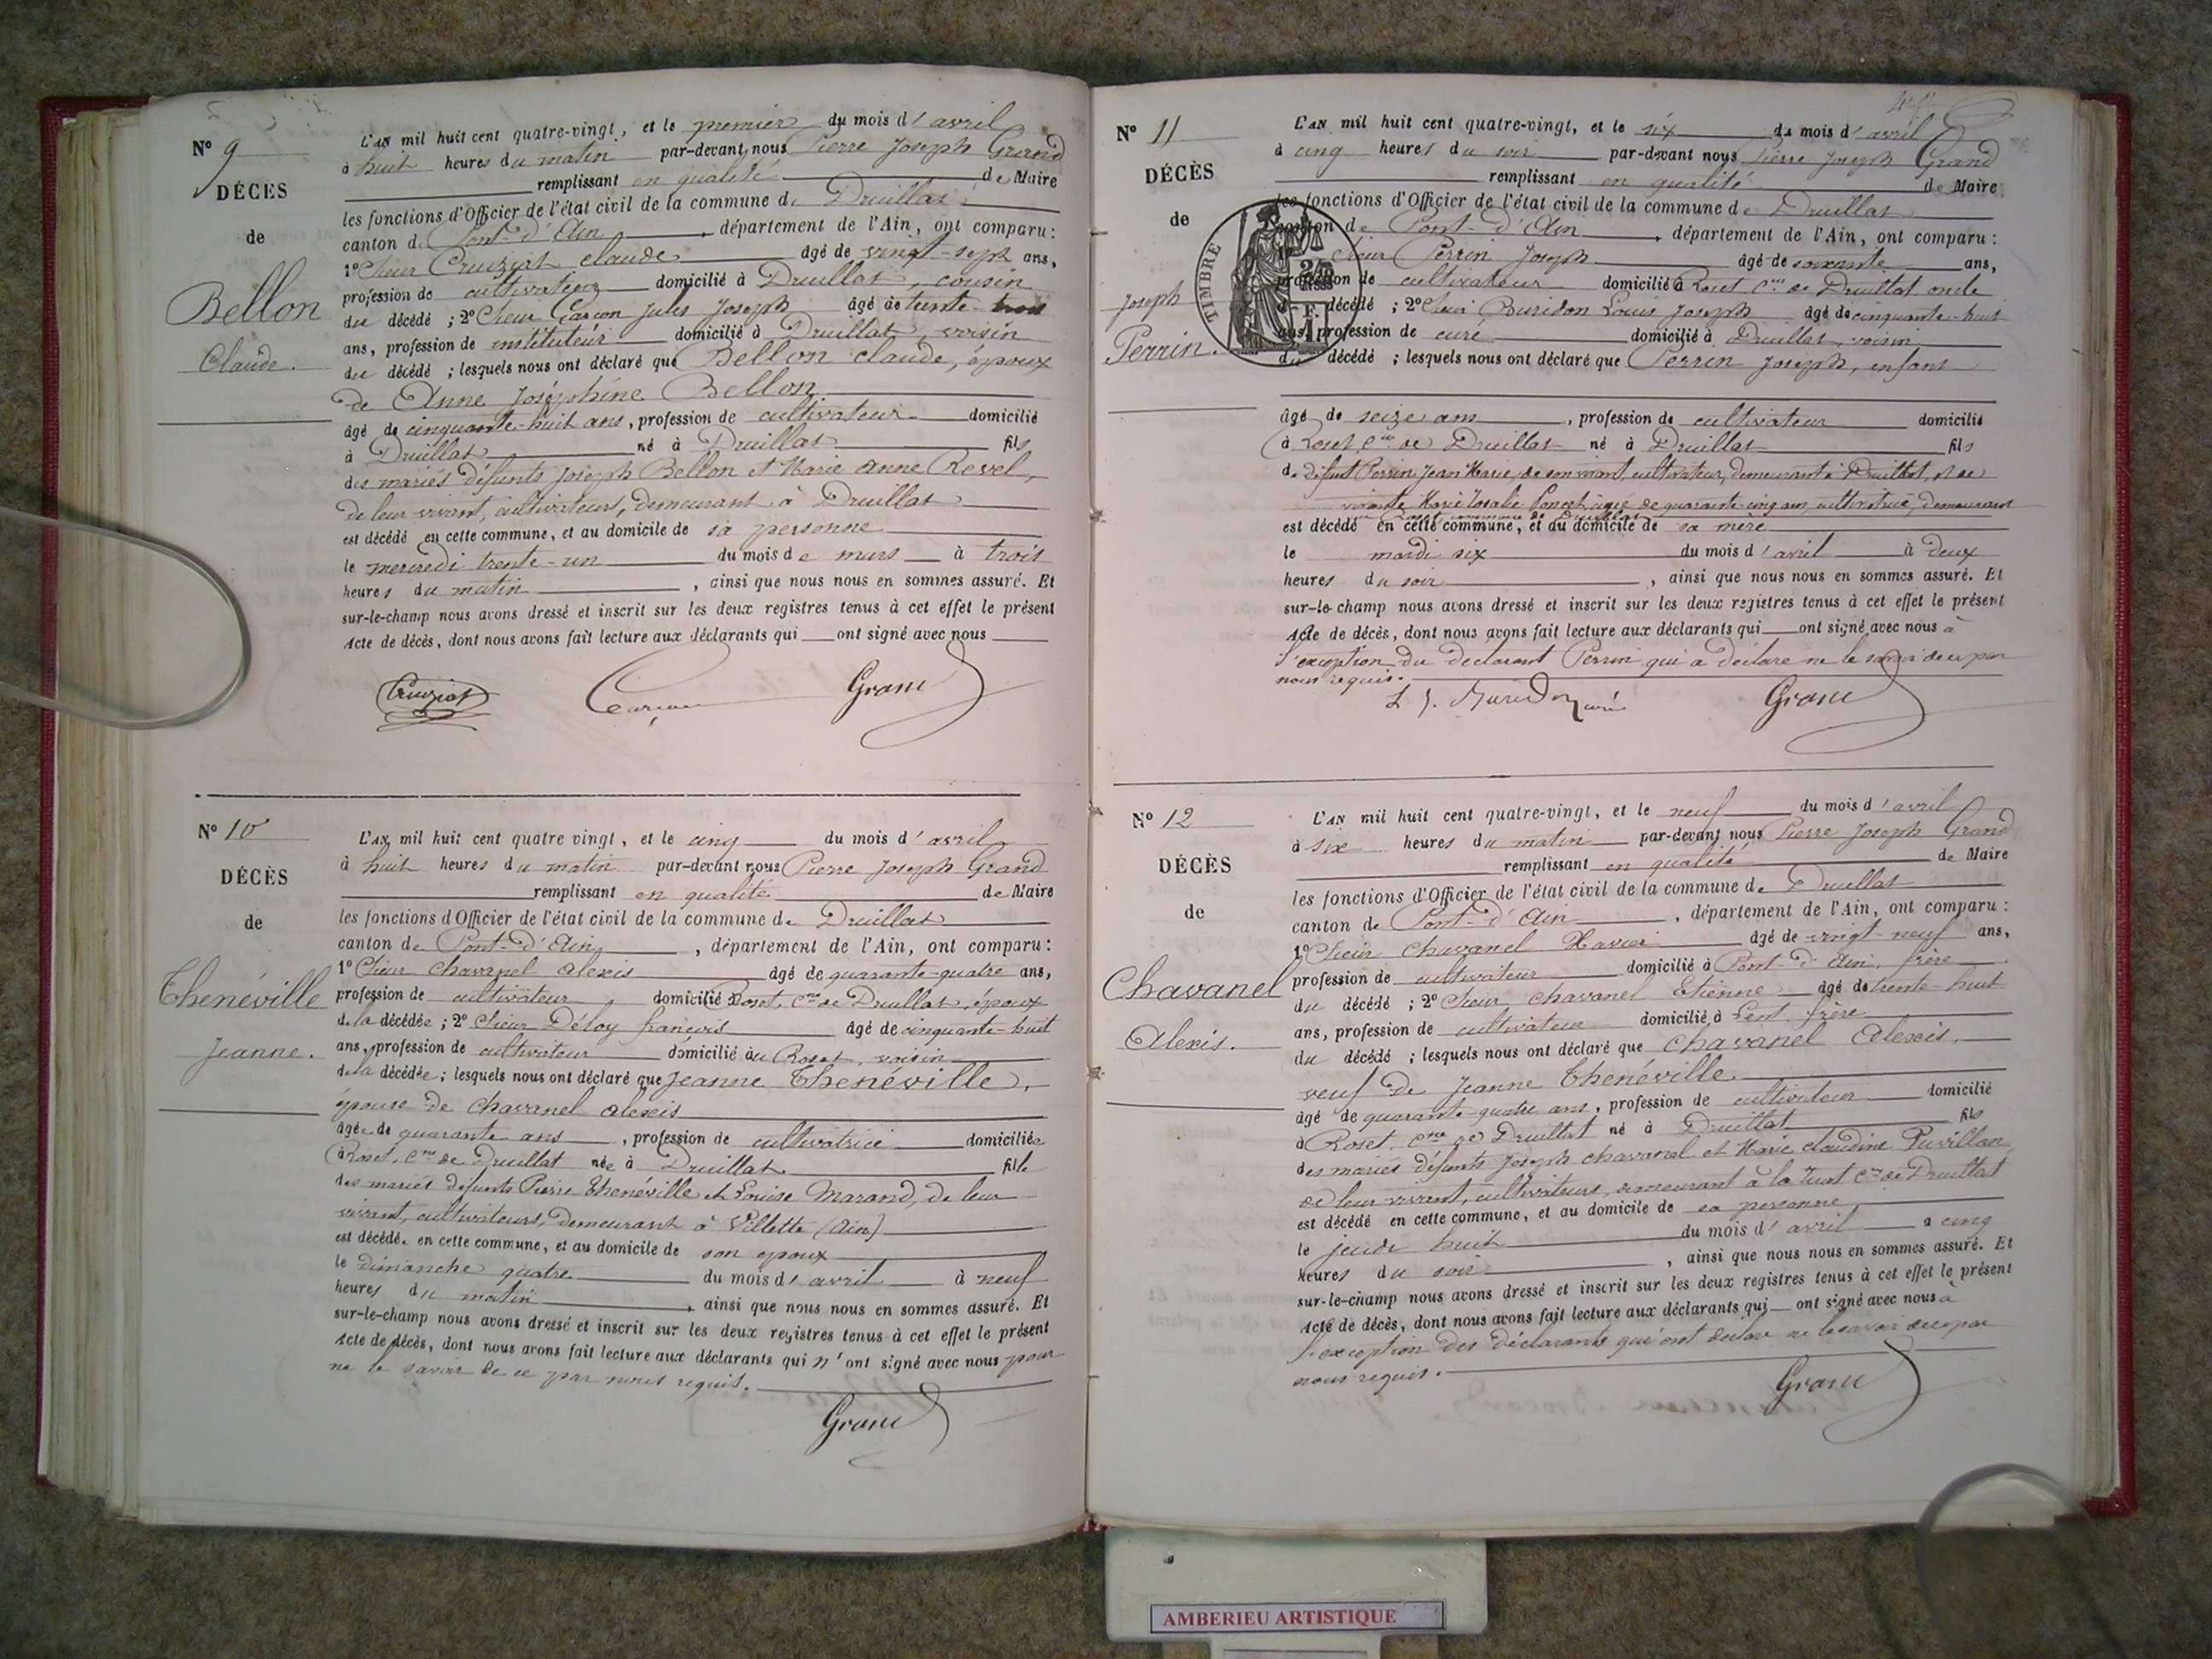 N° 9
DÉCÈS
de
Bellon
Claude.
L'AN mil huit cent quatre-vingt, et le premier du mois d'avril
à huit heures du matin par-devant nous Pierre Joseph Grand
remplissant en qualité de Maire
les fonctions d'Officier de l'état civil de la commune de Druillat
canton de Pont-d'Ain, département de l'Ain, ont comparu :
1° Sieur Cruziat Claude âgé de vingt-sept ans,
profession de cultivateur domicilié à Druillat, cousin
du décédé ; 2° Sieur Garçon Jules Joseph âgé de trente-trois
ans, profession de instituteur domicilié à Druillat, voisin
du décédé ; lesquels nous ont déclaré que Bellon Claude, époux
de Anne Joséphine Bellon
âgé de cinquante-huit ans, profession de cultivateur domicilié
à Druillat né à Druillat fils
des mariés défunts Joseph Bellon et Marie Anne Revel,
de leur vivant, cultivateurs, demeurant à Druillat
est décédé en cette commune, et au domicile de sa personne
le mercredi trente-un du mois de mars à trois
heures du matin, ainsi que nous nous en sommes assuré. Et
sur-le-champ nous avons dressé et inscrit sur les deux registres tenus à cet effet le présent
Acte de décès, dont nous avons fait lecture aux déclarants qui ont signé avec nous
Cruziat Garçon Grand
N° 10
DÉCÈS
de
Thenéville
Jeanne.
L'AN mil huit cent quatre vingt, et le cinq du mois d'avril
à huit heures du matin par-devant nous Pierre Joseph Grand
remplissant en qualité de Maire
les fonctions d'Officier de l'état civil de la commune de Druillat
canton de Pont-d'Ain, département de l'Ain, ont comparu :
1° Sieur Chavanel Alexis âgé de quarante-quatre ans,
profession de cultivateur domicilié à Roset, Cne de Druillat, époux
de la décédée ; 2° Sieur Déloy françois âgé de cinquante-huit
ans, profession de cultivateur domicilié au Roset, voisin
de la décédée ; lesquels nous ont déclaré que Jeanne Thenéville,
épouse de Chavanel Alexis
âgée de quarante ans, profession de cultivatrice domiciliée
à Roset, Cne de Druillat née à Druillat fille
des mariés défunts Pierre Thenéville et Louise Marand, de leur
vivant, cultivateurs, demeurant à Villette (Ain)
est décédée en cette commune, et au domicile de son époux
le dimanche quatre du mois d'avril à neuf
heures du matin, ainsi que nous nous en sommes assuré. Et
sur-le-champ nous avons dressé et inscrit sur les deux registres tenus à cet effet le présent
Acte de décès, dont nous avons fait lecture aux déclarants qui n'ont signé avec nous pour
ne le savoir de ce par nous requis.
Grand
N° 11
DÉCÈS
de
Joseph
Perrin.
TIMBRE
L'AN mil huit cent quatre-vingt, et le six du mois d'avril
à cinq heures du soir par-devant nous Pierre Joseph Grand
remplissant en qualité de Maire
les fonctions d'Officier de l'état civil de la commune de Druillat
canton de Pont-d'Ain, département de l'Ain, ont comparu :
Sieur Perrin Joseph âgé de soixante ans,
profession de cultivateur domicilié à Roset Cne de Druillat oncle
du décédé ; 2° Sieur Buridon Louis Joseph âgé de cinquante-huit
ans, profession de curé domicilié à Druillat, voisin
du décédé ; lesquels nous ont déclaré que Perrin Joseph, enfant
âgé de seize ans, profession de cultivateur domicilié
à Roset, Cne de Druillat né à Druillat fils
de défunt Perrin Jean Marie, de son vivant, cultivateur, demeurant à Druillat, et de
vivante Marie Rosalie Poncet, agée de quarante-cinq ans, cultivatrice, demeurant
est décédé en cette commune, et au domicile de sa mère
le mardi six du mois d'avril à deux
heures du soir, ainsi que nous nous en sommes assuré. Et
sur-le-champ nous avons dressé et inscrit sur les deux registres tenus à cet effet le présent
Acte de décès, dont nous avons fait lecture aux déclarants qui ont signé avec nous à
l'exception du déclarant Perrin qui a déclaré ne le savoir de ce par
nous requis.
L. J. Buridon curé Grand
N° 12
DÉCÈS
de
Chavanel
Alexis.
L'AN mil huit cent quatre-vingt, et le neuf du mois d'avril
à six heures du matin par-devant nous Pierre Joseph Grand
remplissant en qualité de Maire
les fonctions d'Officier de l'état civil de la commune de Druillat
canton de Pont-d'Ain, département de l'Ain, ont comparu :
1° Sieur Chavanel Xavier âgé de vingt-neuf ans,
profession de cultivateur domicilié à Pont-d'Ain, frère
du décédé ; 2° Sieur Chavanel Etienne âgé de trente-huit
ans, profession de cultivateur domicilié à Lent frère
du décédé ; lesquels nous ont déclaré que Chavanel Alexis,
veuf de Jeanne Thenéville
âgé de quarante-quatre ans, profession de cultivateur domicilié
à Roset, Cne de Druillat né à Druillat fils
des mariés défunts Joseph Chavanel et Marie Claudine Puvillan
de leur vivant, cultivateurs, demeurant à la Cne de Druillat
est décédé en cette commune, et au domicile de sa personne
le jeudi huit du mois d'avril à cinq
heures du soir, ainsi que nous nous en sommes assuré. Et
sur-le-champ nous avons dressé et inscrit sur les deux registres tenus à cet effet le présent
Acte de décès, dont nous avons fait lecture aux déclarants qui ont signé avec nous à
l'exception des déclarants qui ont déclaré ne le savoir de ce par
nous requis.
Grand
AMBERIEU ARTISTIQUE